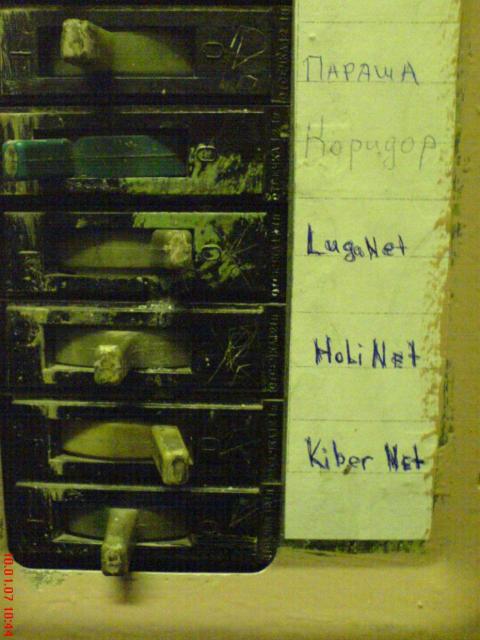 ПАРАША
Коридор
LugaNet
HoLiNet
Kiber Net
10.01.07 10:44